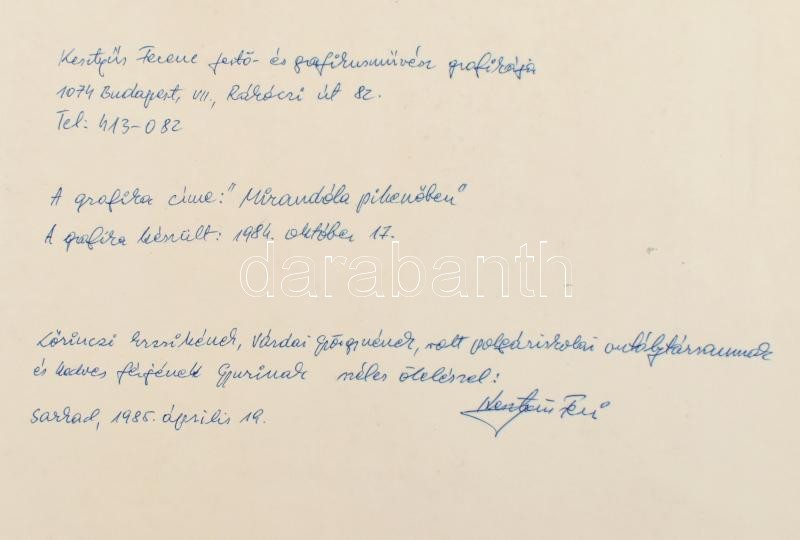 Kesztyűs Ferenc festő- és grafikusművész grafikája
1074 Budapest, VII., Rákóczi út 82.
Tel: 413-082
A grafika címe: "Mirandóla pihenőben"
A grafika készült: 1984. október 17.
darabanth
Lőrinczi Erzsikének, Várdai Györgynének, volt polgáriskolai osztálytársamnak
és kedves férjének Gyurinak széles öleléssel:
Sarkad, 1985. április 19.
Kesztyűs Feri